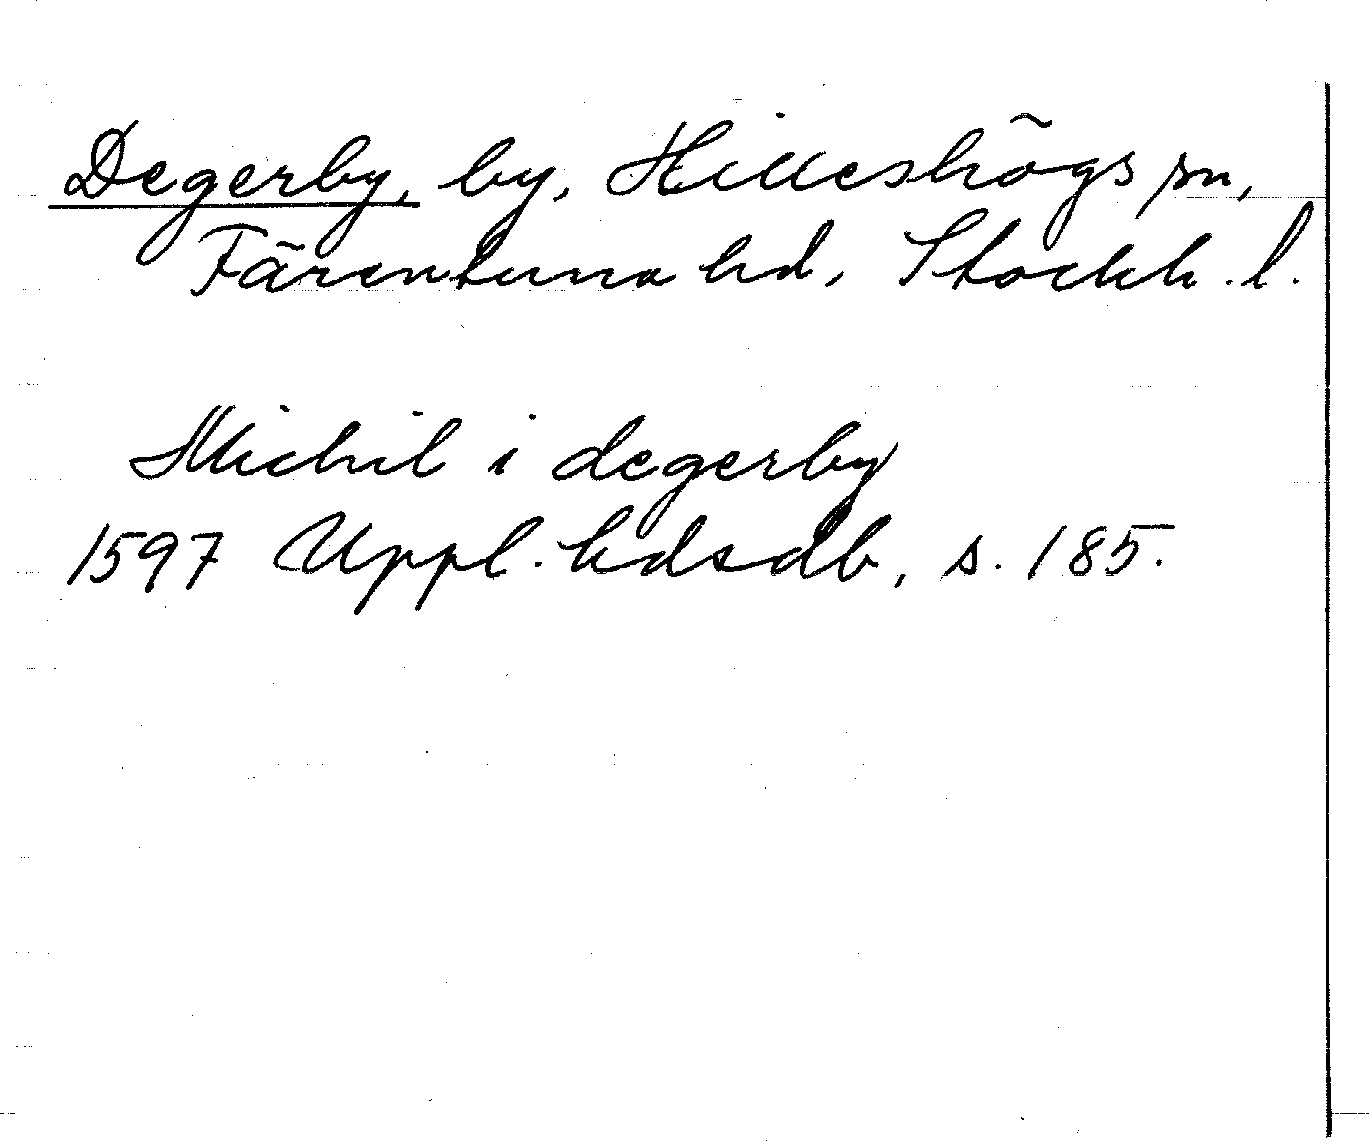 Degerby, by, Hilleshögs sn,
Färentuna hd, Stockh. l.
Michil i degerby
1597 Uppl. hdsdb, s. 185.